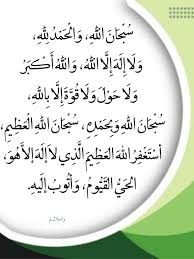 سُبْحَانَ اللهِ، وَالْحَمْدُ لِلَّهِ،
وَلَا إِلَهَ إِلَّا اللهُ، وَاللهُ أَكْبَرُ
وَلَا حَوْلَ وَلَا قُوَّةَ إِلَّا بِاللهِ،
سُبْحَانَ اللهِ وَبِحَمْدِهِ، سُبْحَانَ اللهِ الْعَظِيمِ،
أَسْتَغْفِرُ اللهَ الْعَظِيمَ الَّذِي لَا إِلَهَ إِلَّا هُوَ،
الْحَيُّ الْقَيُّومُ، وَأَتُوبُ إِلَيْهِ.